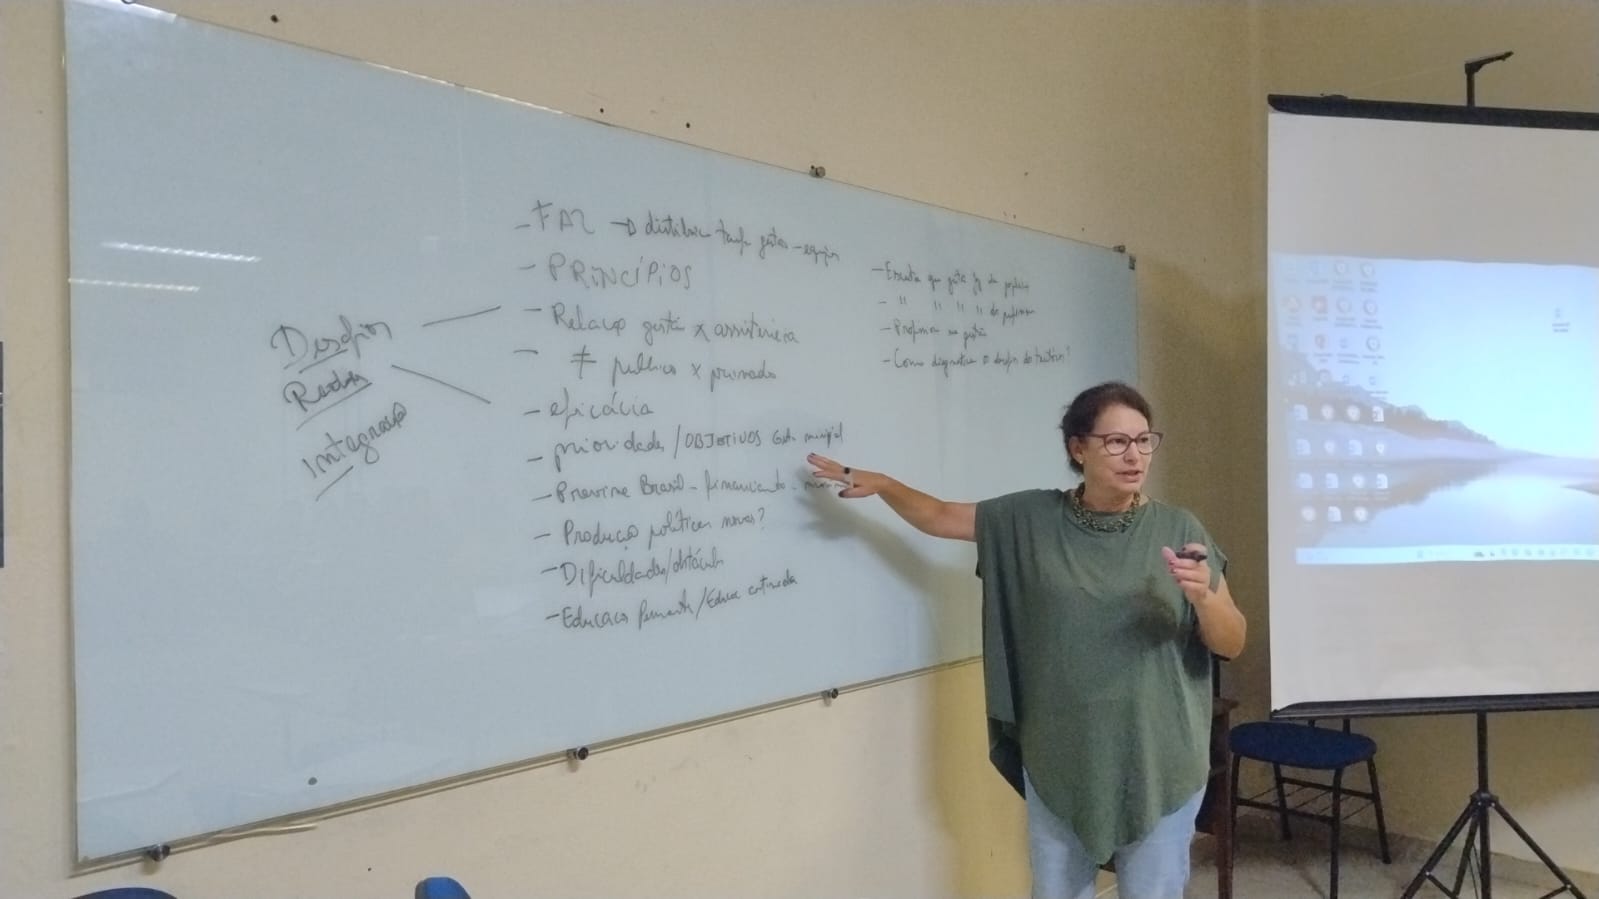 Desafios
Redes
Integração
- FAZ → distribui gestão - equipes
- PRINCÍPIOS
- Relação gestão x assistência
- ≠ publico x privado
- eficácia
- prioridades / OBJETIVOS Gestão municipal
- Previne Brasil - financiamento -
- Produção políticas novas?
- Dificuldades/obstáculos
- Educação Permanente / Educa continuada
- que gestão faz da população
- " " " " do profissional
- Professor na gestão
- Como diagnosticar o desafio do território?